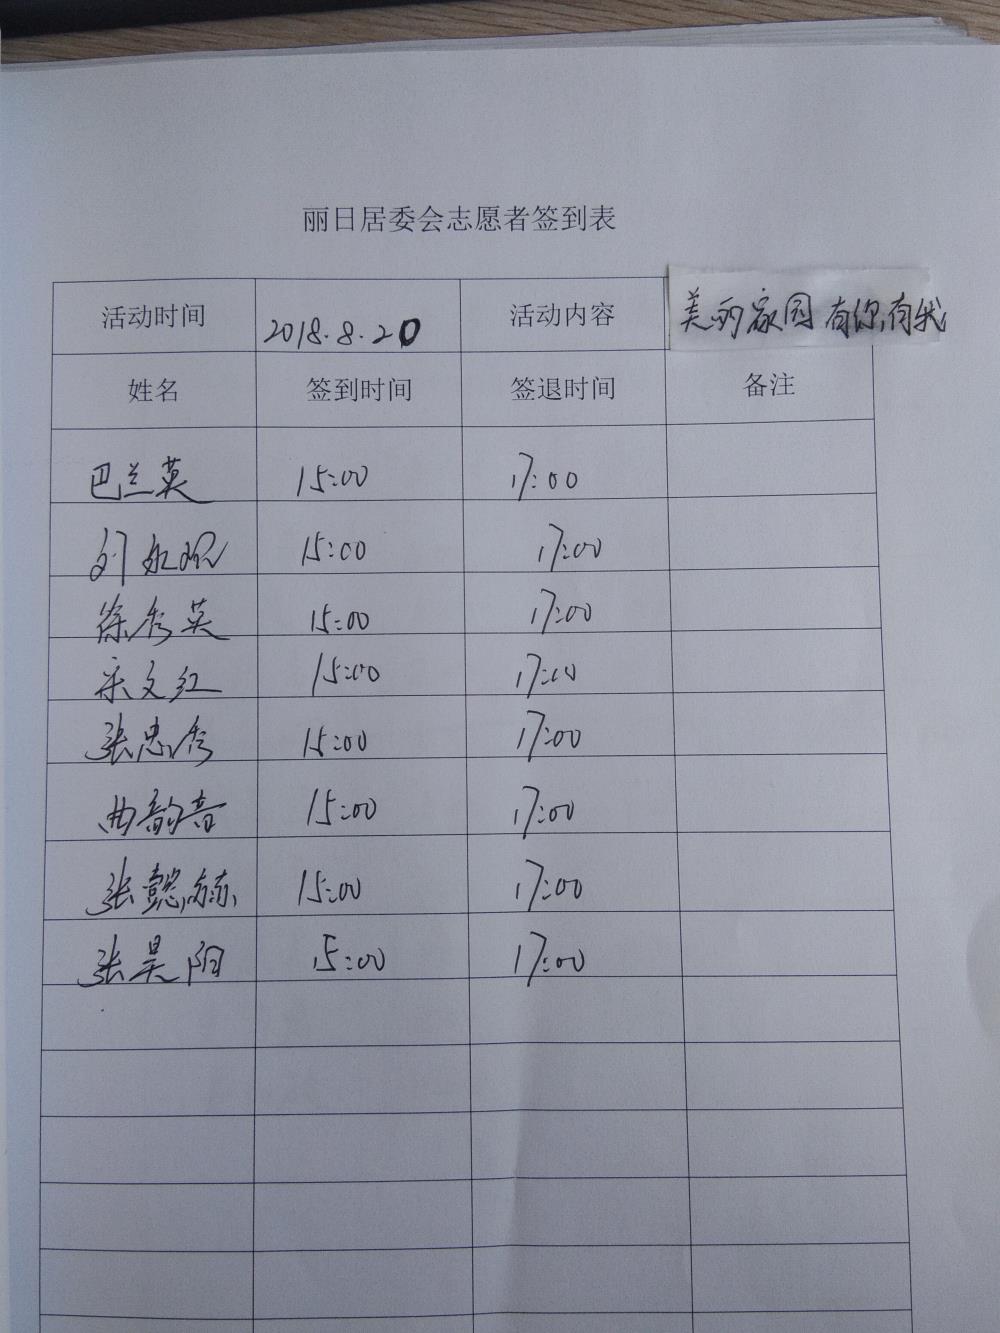 丽日居委会志愿者签到表
活动时间 2018.8.20 活动内容 美丽家园 有你,有我
姓名 签到时间 签退时间 备注
巴兰英 15:00 17:00
刘 15:00 17:00
徐秀英 15:00 17:00
宋文红 15:00 17:00
张忠秀 15:00 17:00
曲韵音 15:00 17:00
张懿 15:00 17:00
张昊阳 15:00 17:00